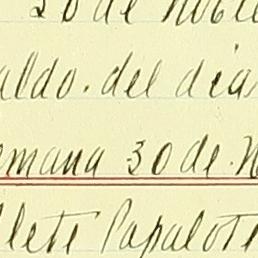 30 de Novie
aldo. del día
emana 30 de. N
llete Papalote